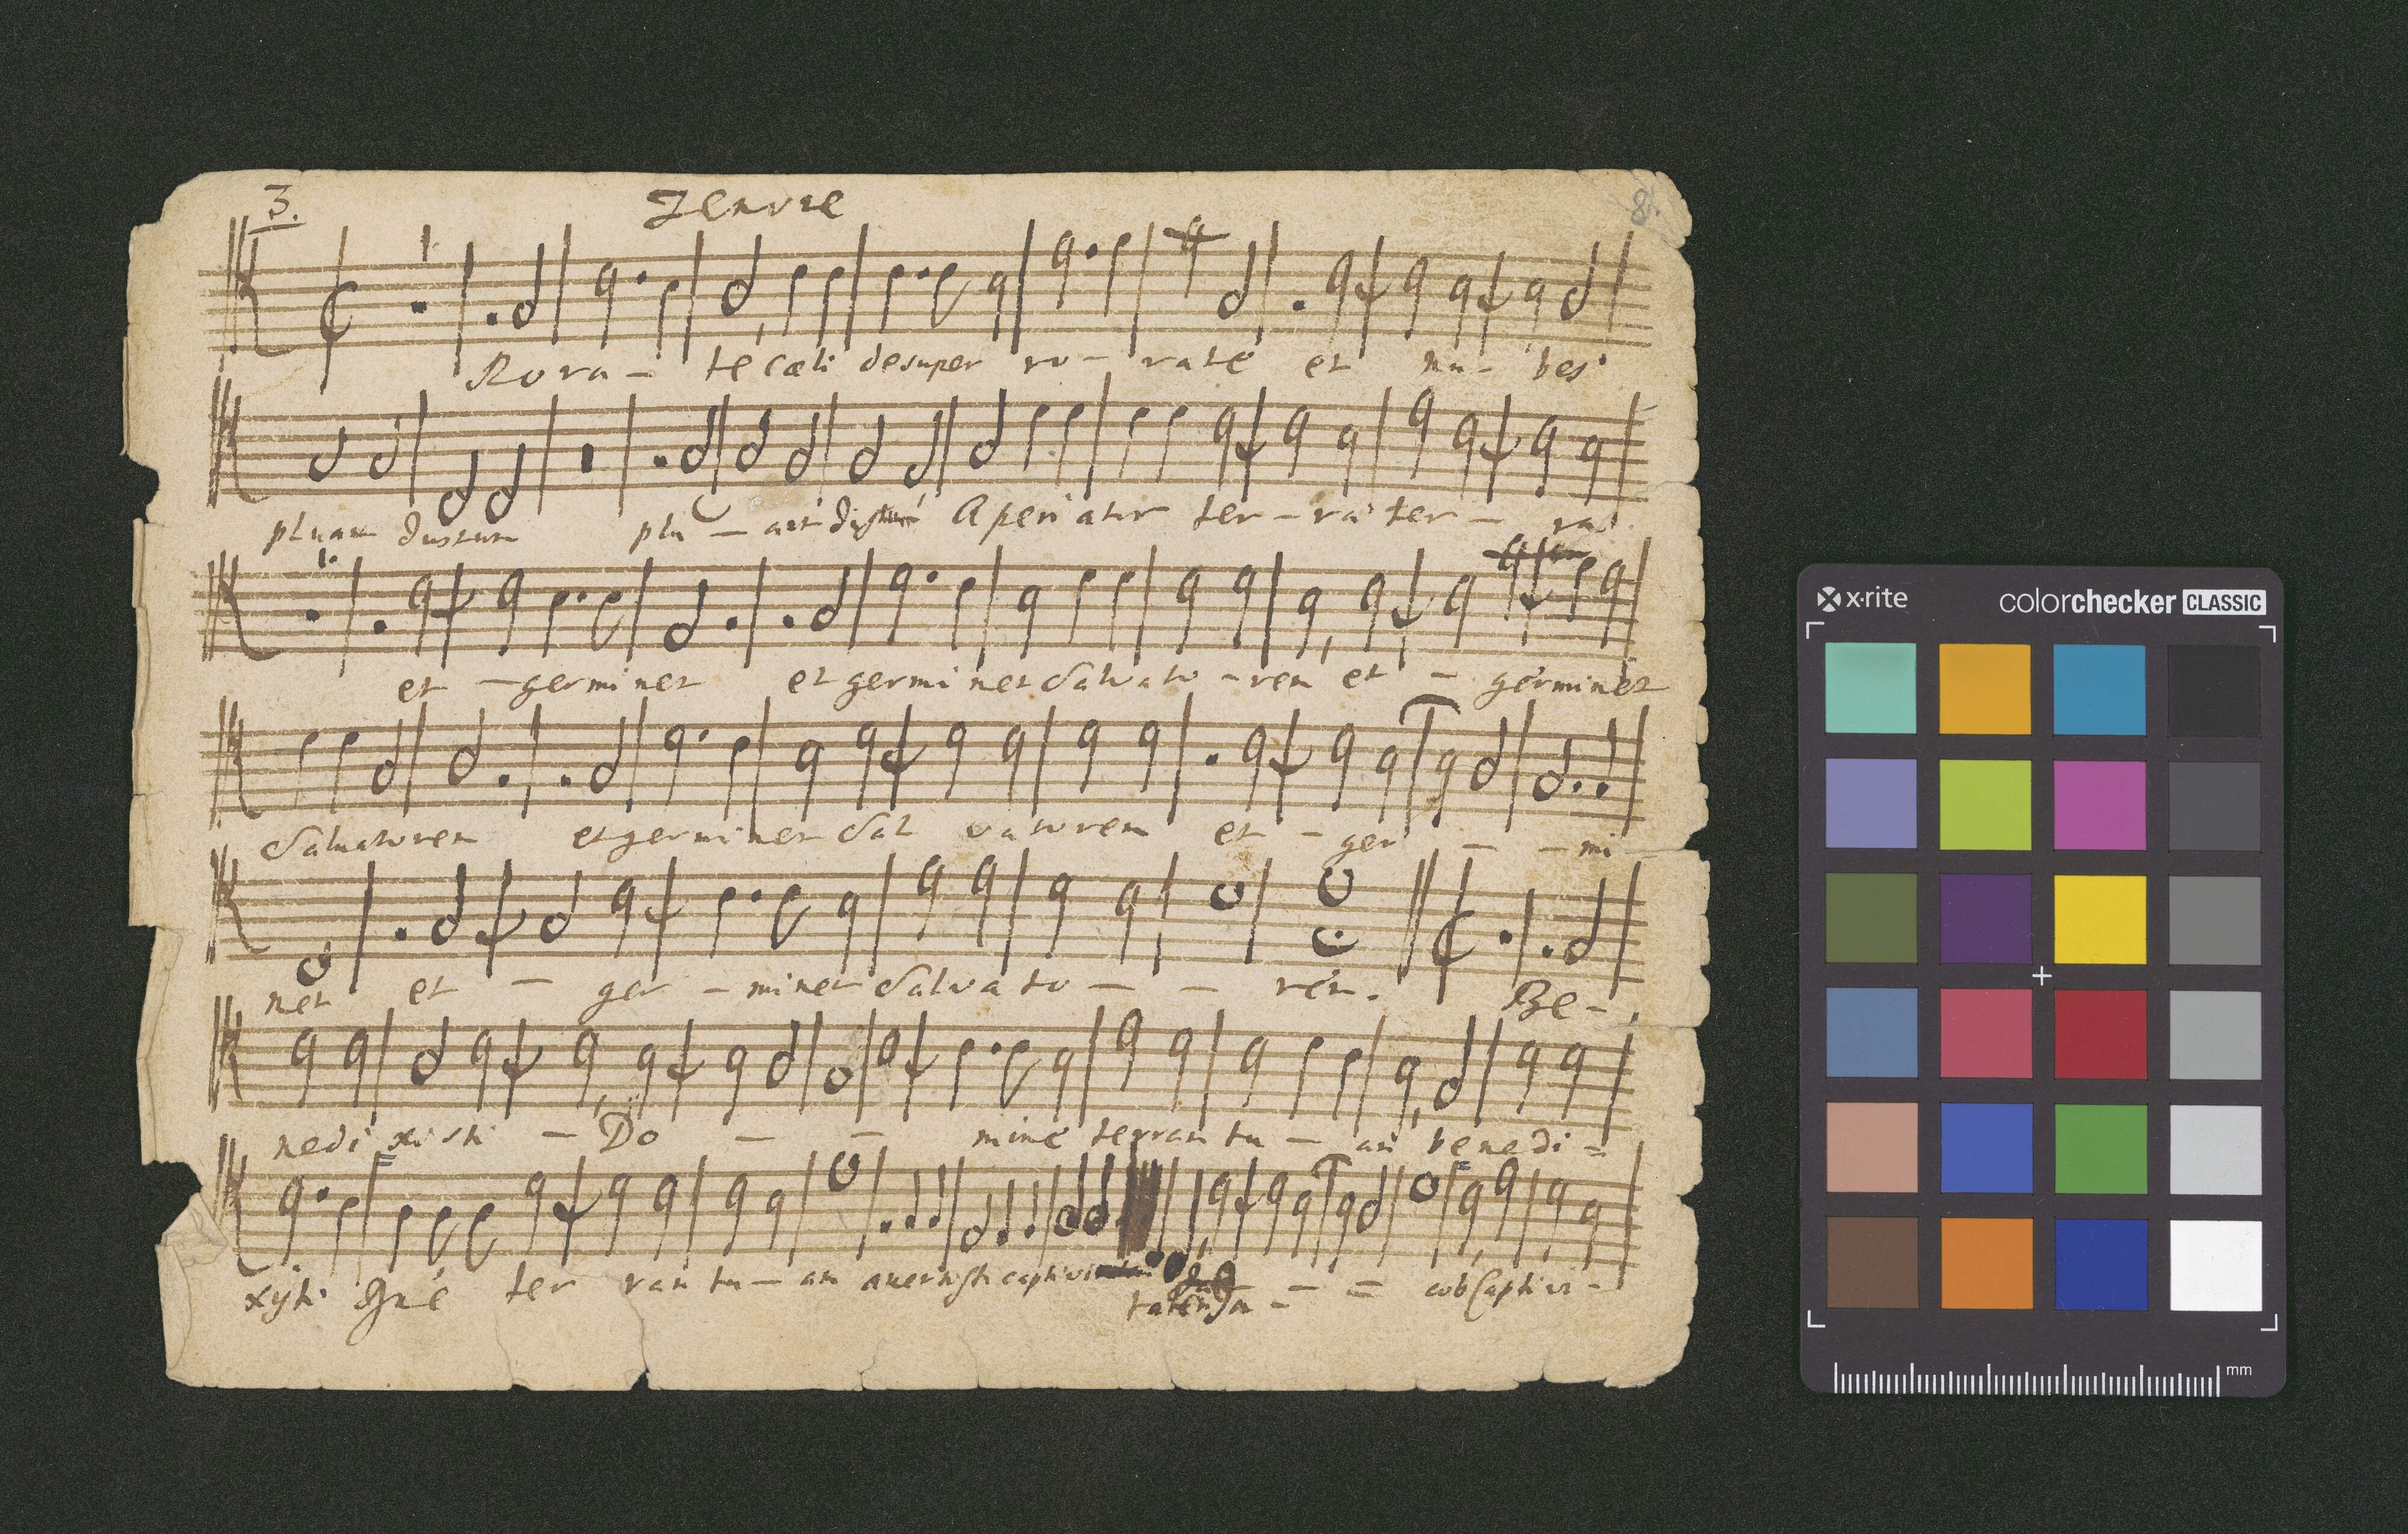 3. Tenore 8.
Rora – te cæli desuper ro – rate et nu – bes
pluant Justum plu – ant Aperiatur ter – ra ter – ra
et – germinet et germinet Salvato – rem et – germinet
Salvatorem et germinet Sal vatorem et – ger – – mi
net et – ger – minet Salvato – – rem. Be –
nedi xisti – Do – – mine terram tu – am benedi =
xisti Dne ter ram tu – am avertisti captivi – = cob Captivi –
tatem
x·rite colorchecker CLASSIC
mm